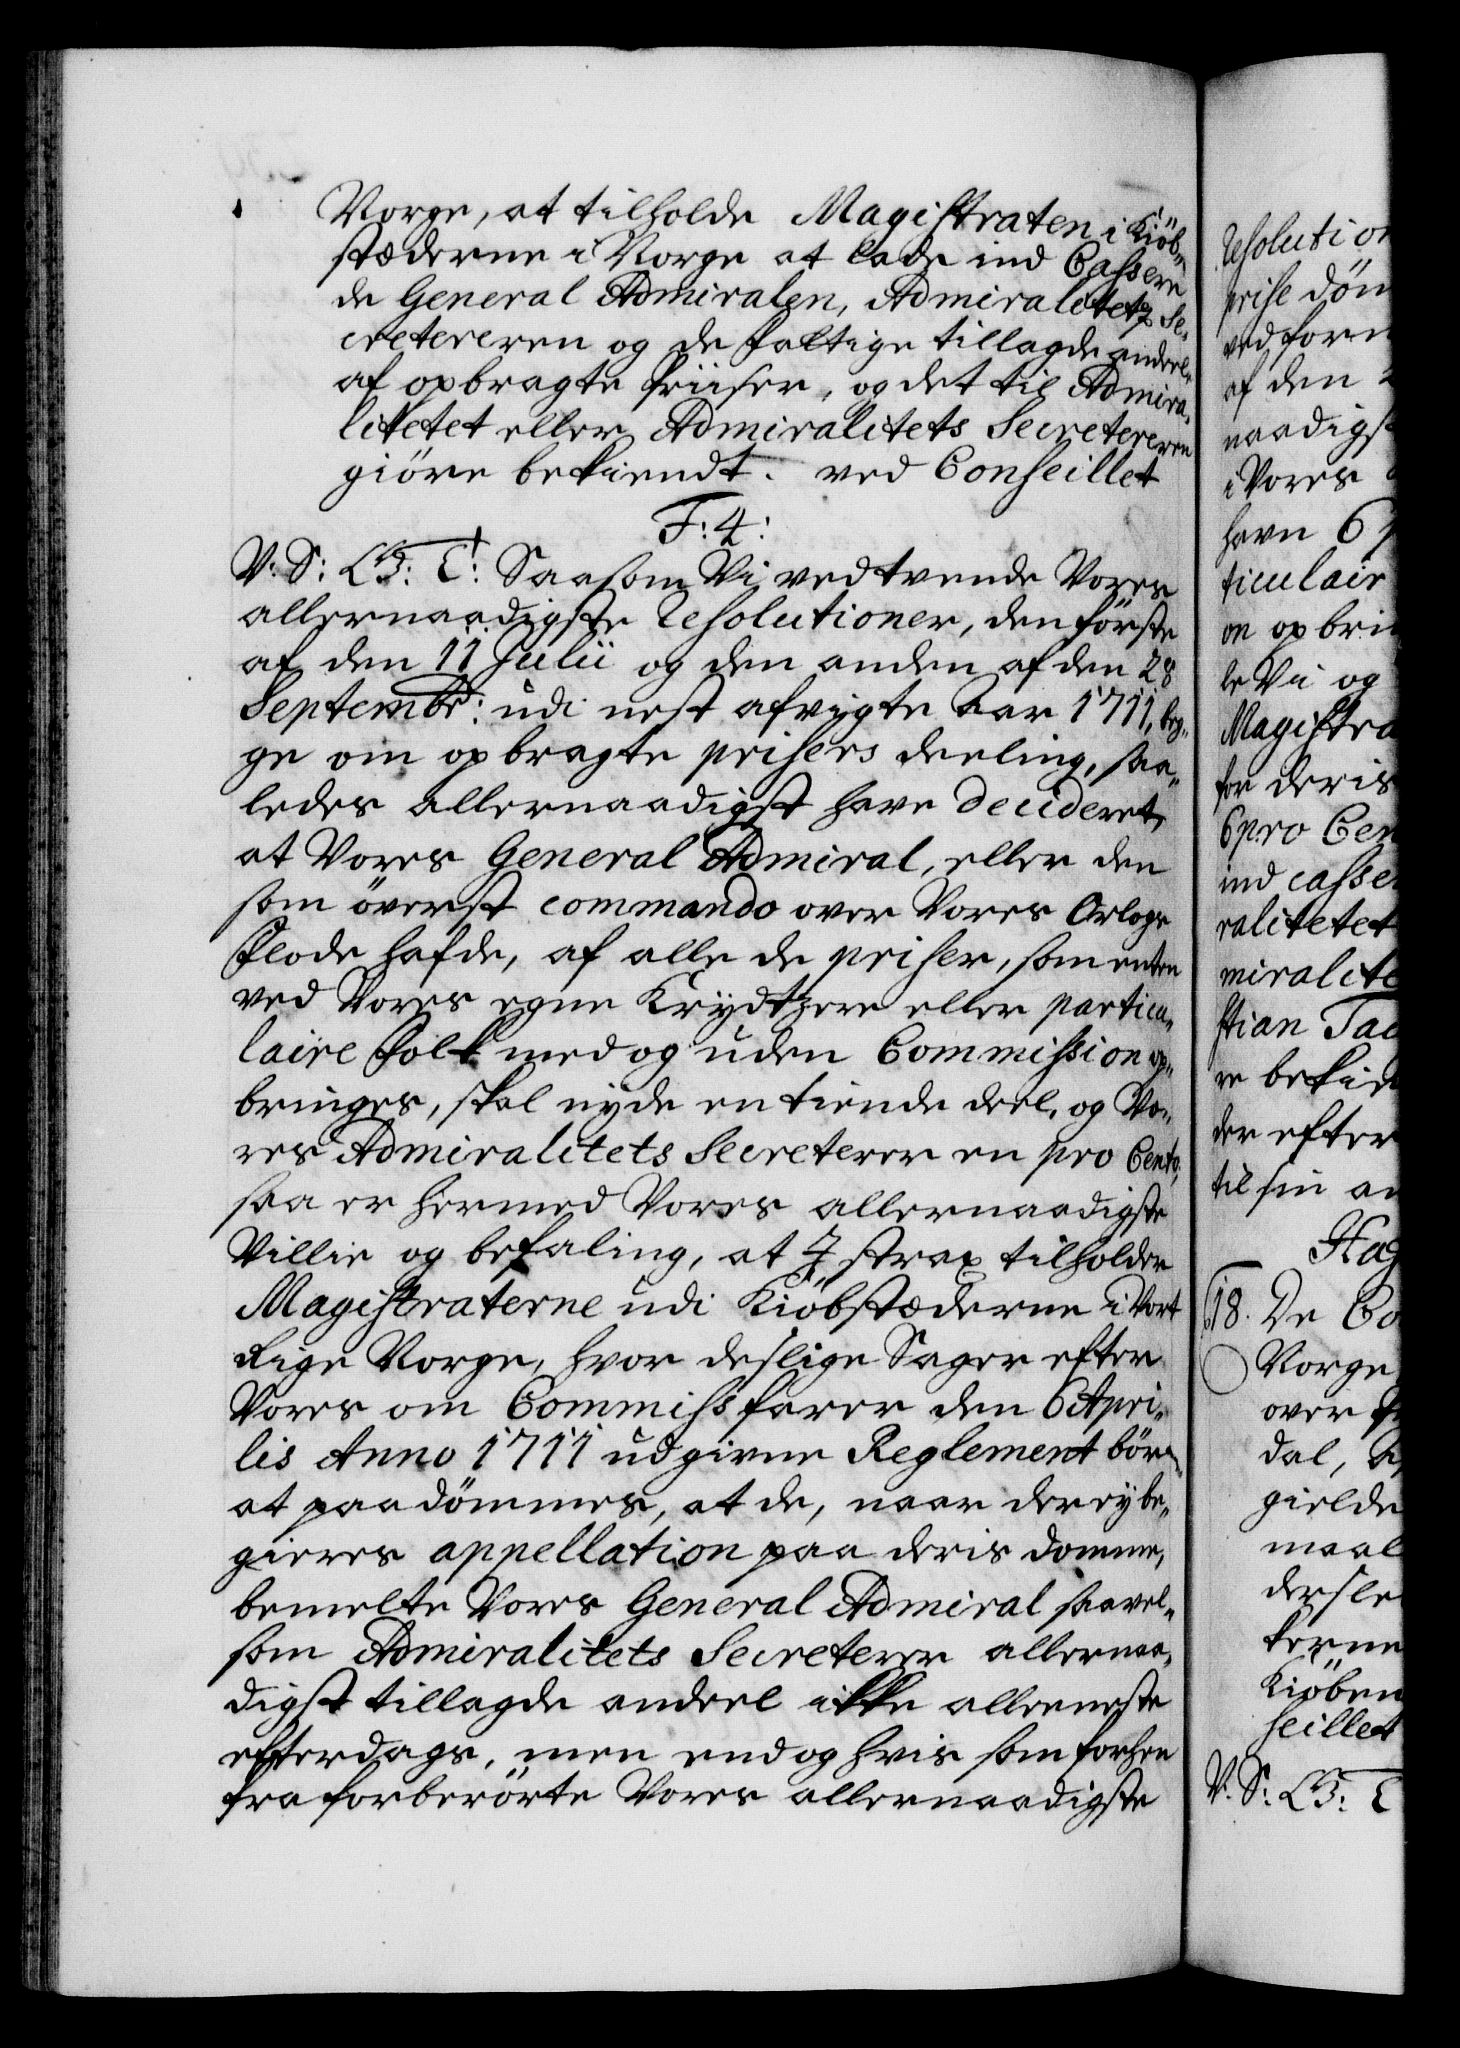 Norge, at tilholde Magistraten i Kiöb-
stæderne i Norge at lade ind Cassere
de General Admiralen, Admiralitetz Se-
cretereren og de fattige tillagde andeele
af opbragte Priiser, og det til Admira-
litetet eller Admiralitets Secretereren
giöre bekiendt. ved Conseillet
F: 4:
V: S: G: T: Saasom Vi ved tvende Vores
allernaadigste Resolutioner, den förste
af den 11 Julii og den anden af den 28
Septembr: udi nest afvigte Aar 1711, beg-
ge om opbragte prisers deeling, saa-
ledes allernaadigst have decideret,
at Vores General Admiral, eller den
som överst commando over Vores Orlogs
Flode hafde, af alle de priser, som enten
ved Vores egne Krydtzere eller particu-
laire Folk med og uden Commission op-
bringes, skal nyde en tiende deel, og Vo-
res Admiralitets Secreterer en pro Cento,
saa er hermed Vores allernaadigste
Villie og befaling, at I strax tilholder
Magistraterne udi Kiöbstæderne i Vort
Rige Norge, hvor deslige Sager efter
Vores om Commissfarer den 6 Apri-
lis Anno 1711 udgivne Reglement bör
at paadömmes, at de, naar der ey be-
gieres appellation paa deris domme,
bemelte Vores General Admiral saavel-
som Admiralitets Secreterer allernaa-
digst tillagde andeel ikke alleeneste
efterdags, men end og hvis som forhen
fra forberörte Vores allernaadigste
Resolution
prise döm
ved form
af den
naadigst
i Vores
havn 6
ticulair
on opbri
le Vii og
Magistra
for deris
6 pro Cen
ind casse
ralitetet
miralite
stian Tau
re bekie
der efter
til sin an
Hag
18. De Co
Norge
over
dal,
gielde
maal
dersle
kerne
Kiöben
seillet
V: S: G: T